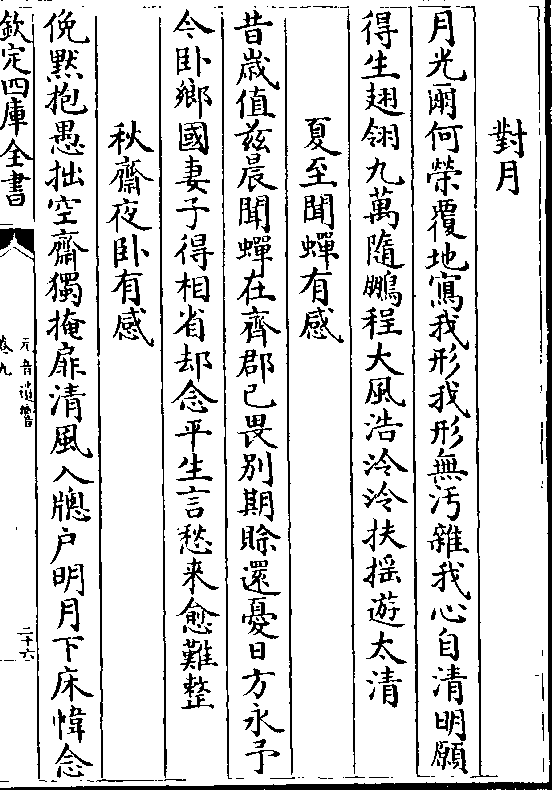 對月
月光爾何榮覆地寫我形我形無汚雜我心自清明願
得生翅翎九萬隨鵬程大風浩泠泠扶搖遊太清
夏至聞蟬有感
昔嵗值兹晨聞蟬在齊郡已畏别期賖還憂日方永予
今卧鄉國妻子得相省却念平生言愁来愈難整
秋齋夜卧有感
俛黙抱愚拙空齋獨掩扉清風入牕户明月下床幃念
欽定四庫全書
元音遺響
卷九
二十六